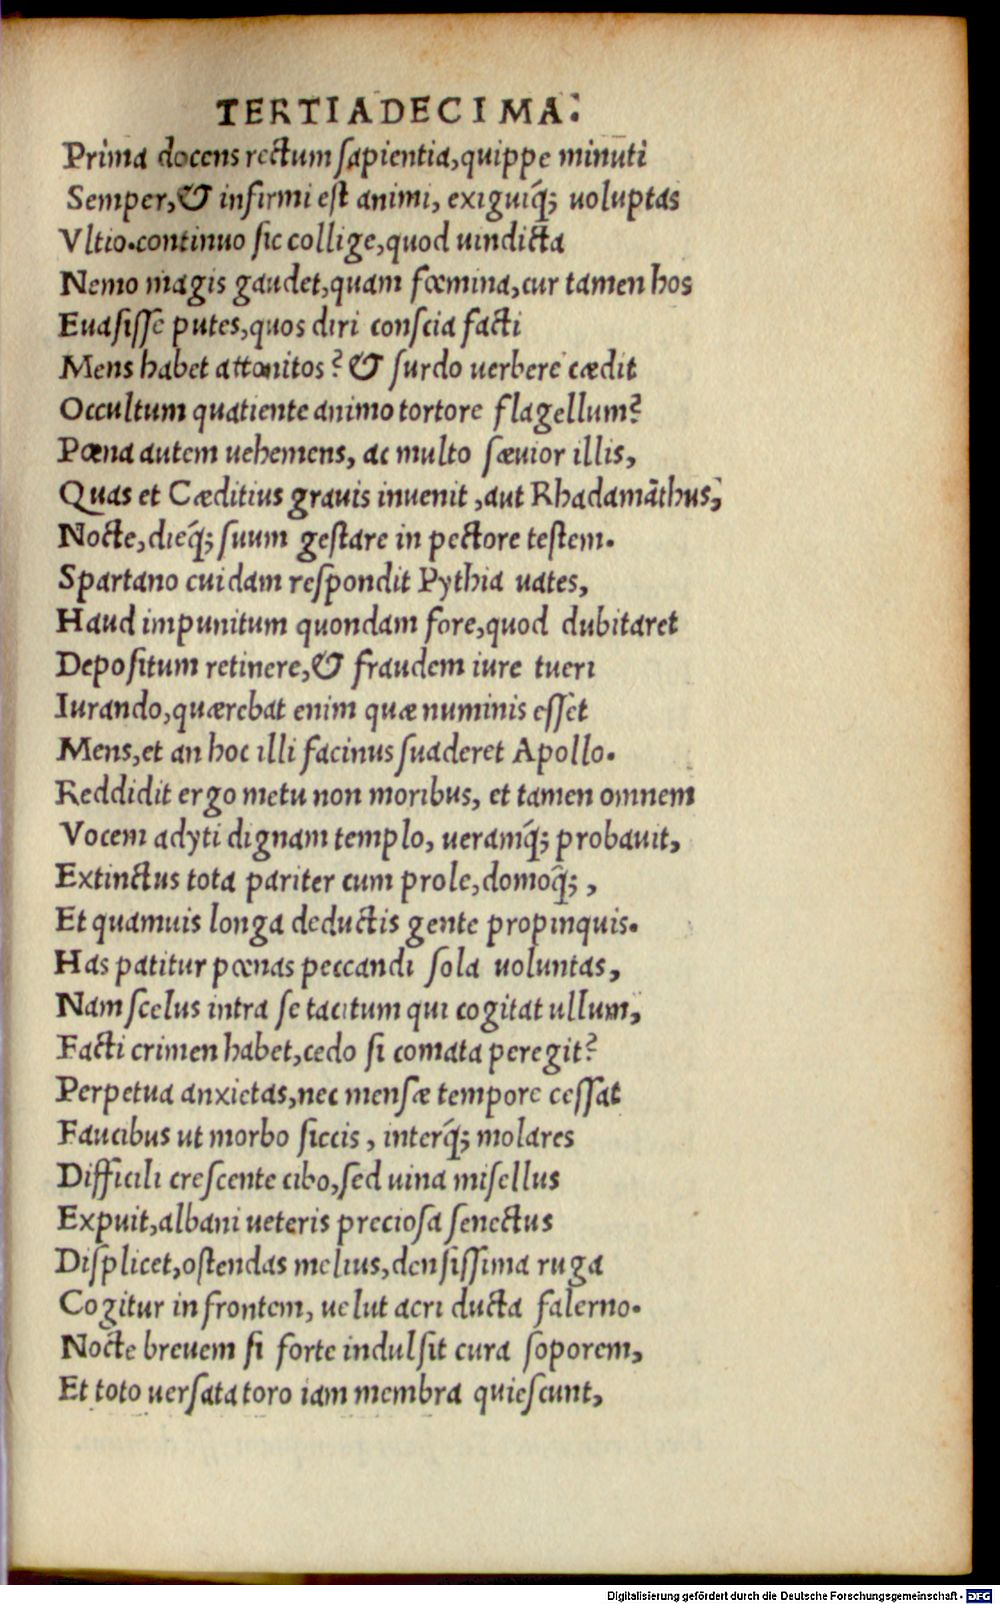 TERTIADECIMA.
Prima docens rectum sapientia,quippe minuti
Semper,& infirmi est animi, exiguiq́; uoluptas
Vltio.continuo sic collige,quod uindicta
Nemo magis gaudet,quam fœmina,cur tamen hos
Euasisse putes,quos diri conscia facti
Mens habet attonitos? & surdo uerbere cædit
Occultum quatiente animo tortore flagellum?
Pœna autem uehemens, ac multo sæuior illis,
Quas et Cæditius grauis inuenit,aut Rhadamāthus,
Nocte,dieq́; suum gestare in pectore testem.
Spartano cuidam respondit Pythia uates,
Haud impunitum quondam fore,quod dubitaret
Depositum retinere,& fraudem iure tueri
Iurando,quærebat enim quæ numinis esset
Mens,et an hoc illi facinus suaderet Apollo.
Reddidit ergo metu non moribus, et tamen omnem
Vocem adyti dignam templo, ueramq́; probauit,
Extinctus tota pariter cum prole,domoq́;,
Et quamuis longa deductis gente propinquis.
Has patitur pœnas peccandi sola uoluntas,
Nam scelus intra se tacitum qui cogitat ullum,
Facti crimen habet,cedo si comata peregit?
Perpetua anxietas,nec mensæ tempore cessat
Faucibus ut morbo siccis, interq́; molares
Difficili crescente cibo,sed uina misellus
Expuit,albani ueteris preciosa senectus
Displicet,ostendas melius,densissima ruga
Cogitur in frontem, uelut acri ducta falerno.
Nocte breuem si forte indulsit cura soporem,
Et toto uersata toro iam membra quiescunt,
Digitalisierung gefördert durch die Deutsche Forschungsgemeinschaft - DFG